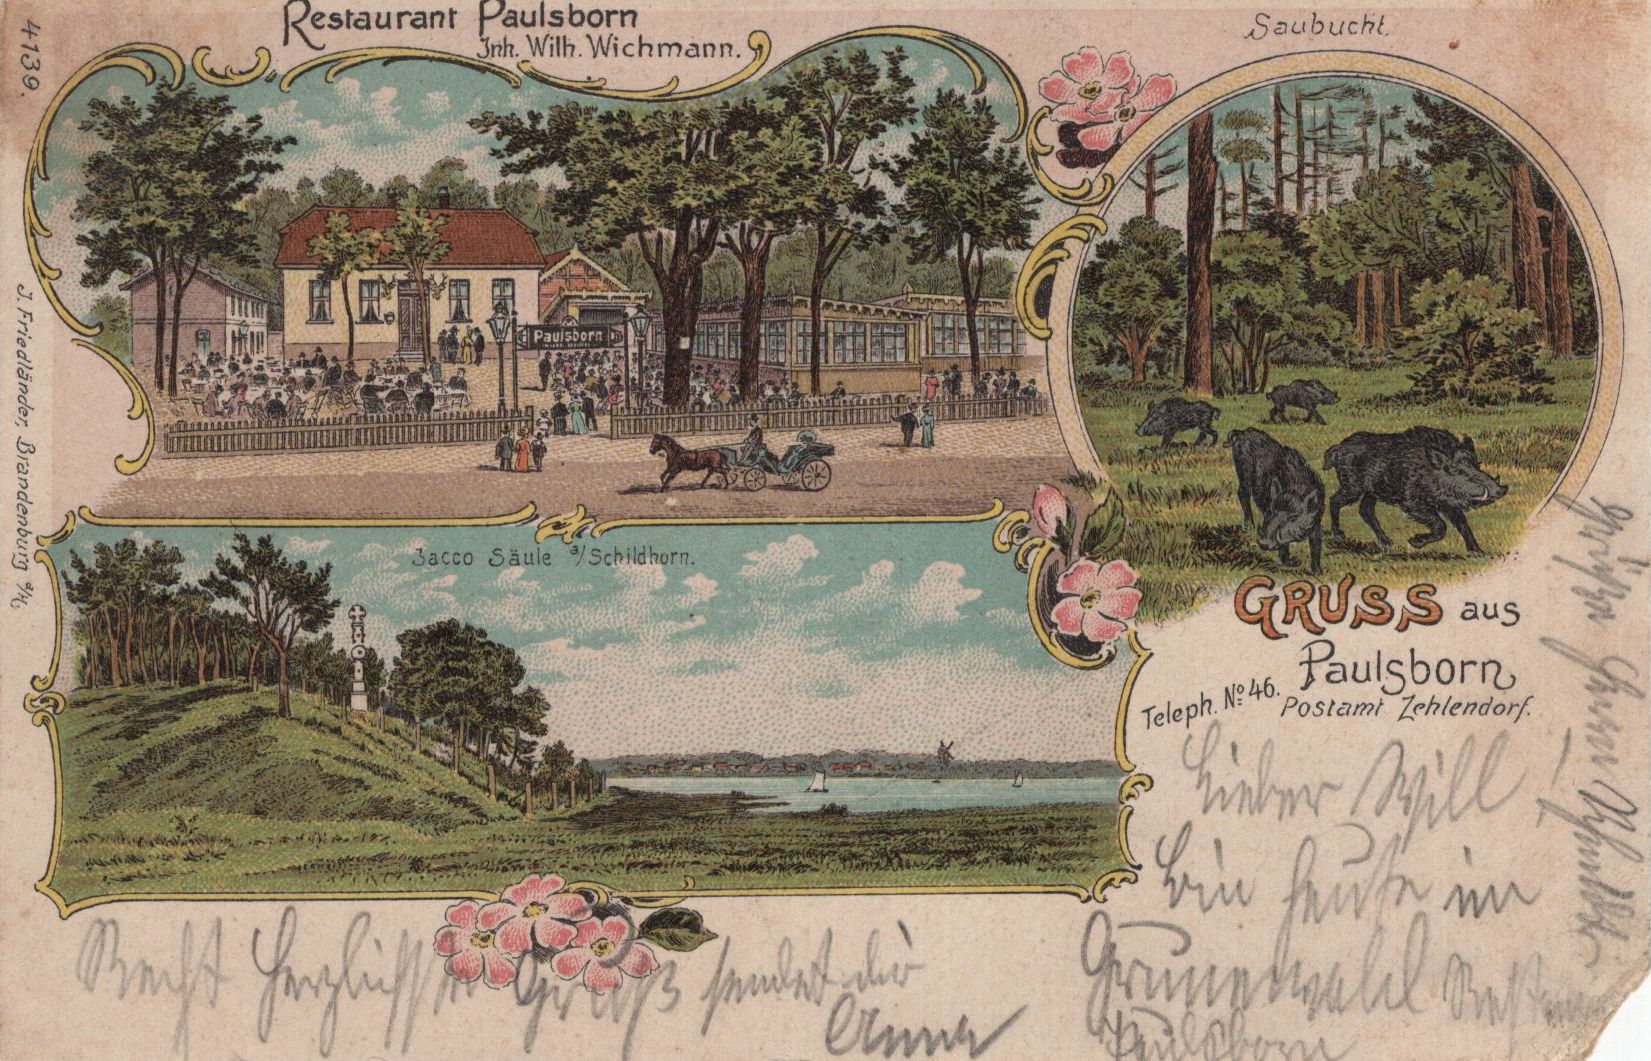 Restaurant Paulsborn
Inh. Wilh. Wichmann.
Saubucht.
4139.
J. Friedländer, Brandenburg a/H.
Paulsborn
Jacco Säule a/Schildhorn.
GRUSS aus
Paulsborn
Teleph. No 46. Postamt Zehlendorf.
Lieber Will!
bin heute im
Grunewald Restau
Paulsborn
Recht herzlichsten Gruß sendet dir
Anna